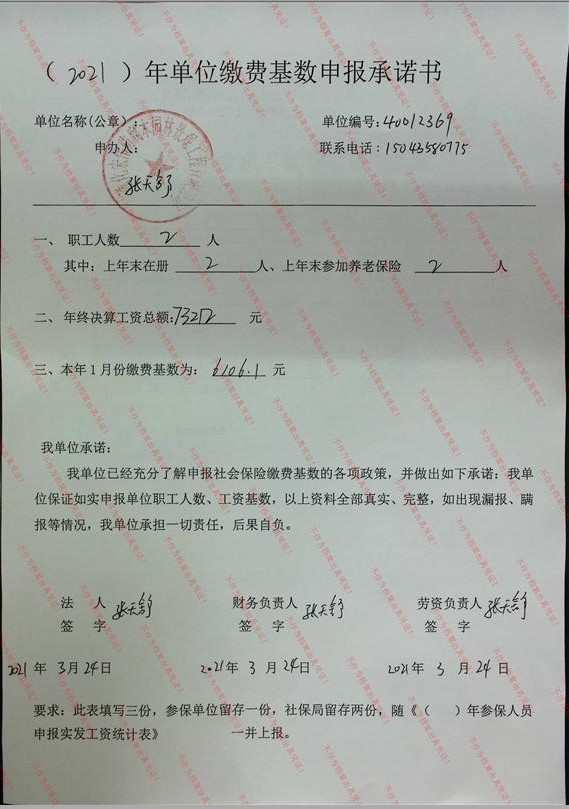 （2021）年单位缴费基数申报承诺书
单位名称(公章)：
单位编号:40012369
申办人：
联系电话：15043580775
张天舒
一、 职工人数 2 人
其中：上年末在册 2 人、上年末参加养老保险 2 人
二、年终决算工资总额:73212 元
三、本年1月份缴费基数为：6106.1 元
我单位承诺：
我单位已经充分了解申报社会保险缴费基数的各项政策，并做出如下承诺：我单
位保证如实申报单位职工人数、工资基数，以上资料全部真实、完整，如出现漏报、瞒
报等情况，我单位承担一切责任，后果自负。
法 人 张天舒 财务负责人 张天舒 劳资负责人 张天舒
签 字 签 字 签 字
2021年 3月24日 2021年 3月24日 2021年 3月24日
要求：此表填写三份，参保单位留存一份，社保局留存两份，随《（ ）年参保人员
申报实发工资统计表》 一并上报。